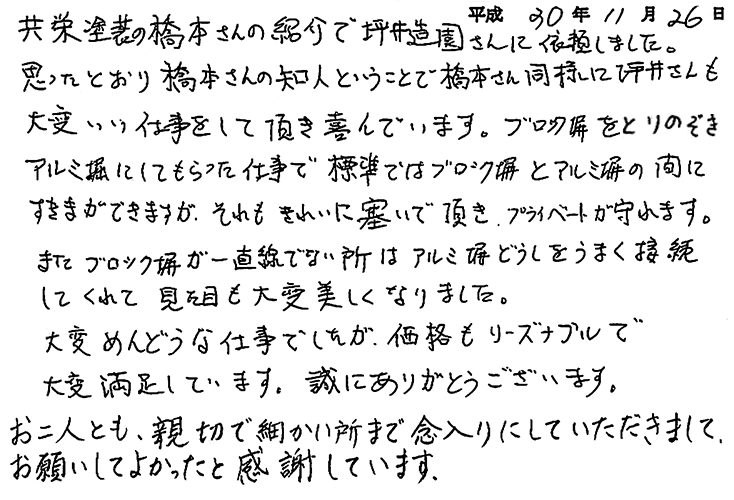 平成 30年 11月 26日
共栄塗装の橋本さんの紹介で坪井造園さんに依頼しました。
思ったとおり橋本さんの知人ということで橋本さん同様に坪井さんも
大変いい仕事をして頂き喜んでいます。ブロック塀をとりのぞき
アルミ塀にしてもらった仕事で標準ではブロック塀とアルミ塀の間に
すきまができますが、それもきれいに塞いで頂き、プライベートが守れます。
またブロック塀が一直線でない所はアルミ塀どうしをうまく接続
してくれて見た目も大変美しくなりました。
大変めんどうな仕事でしたが、価格もリーズナブルで
大変満足しています。誠にありがとうございます。
お二人とも、親切で細かい所まで念入りにしていただきまして、
お願いしてよかったと感謝しています。